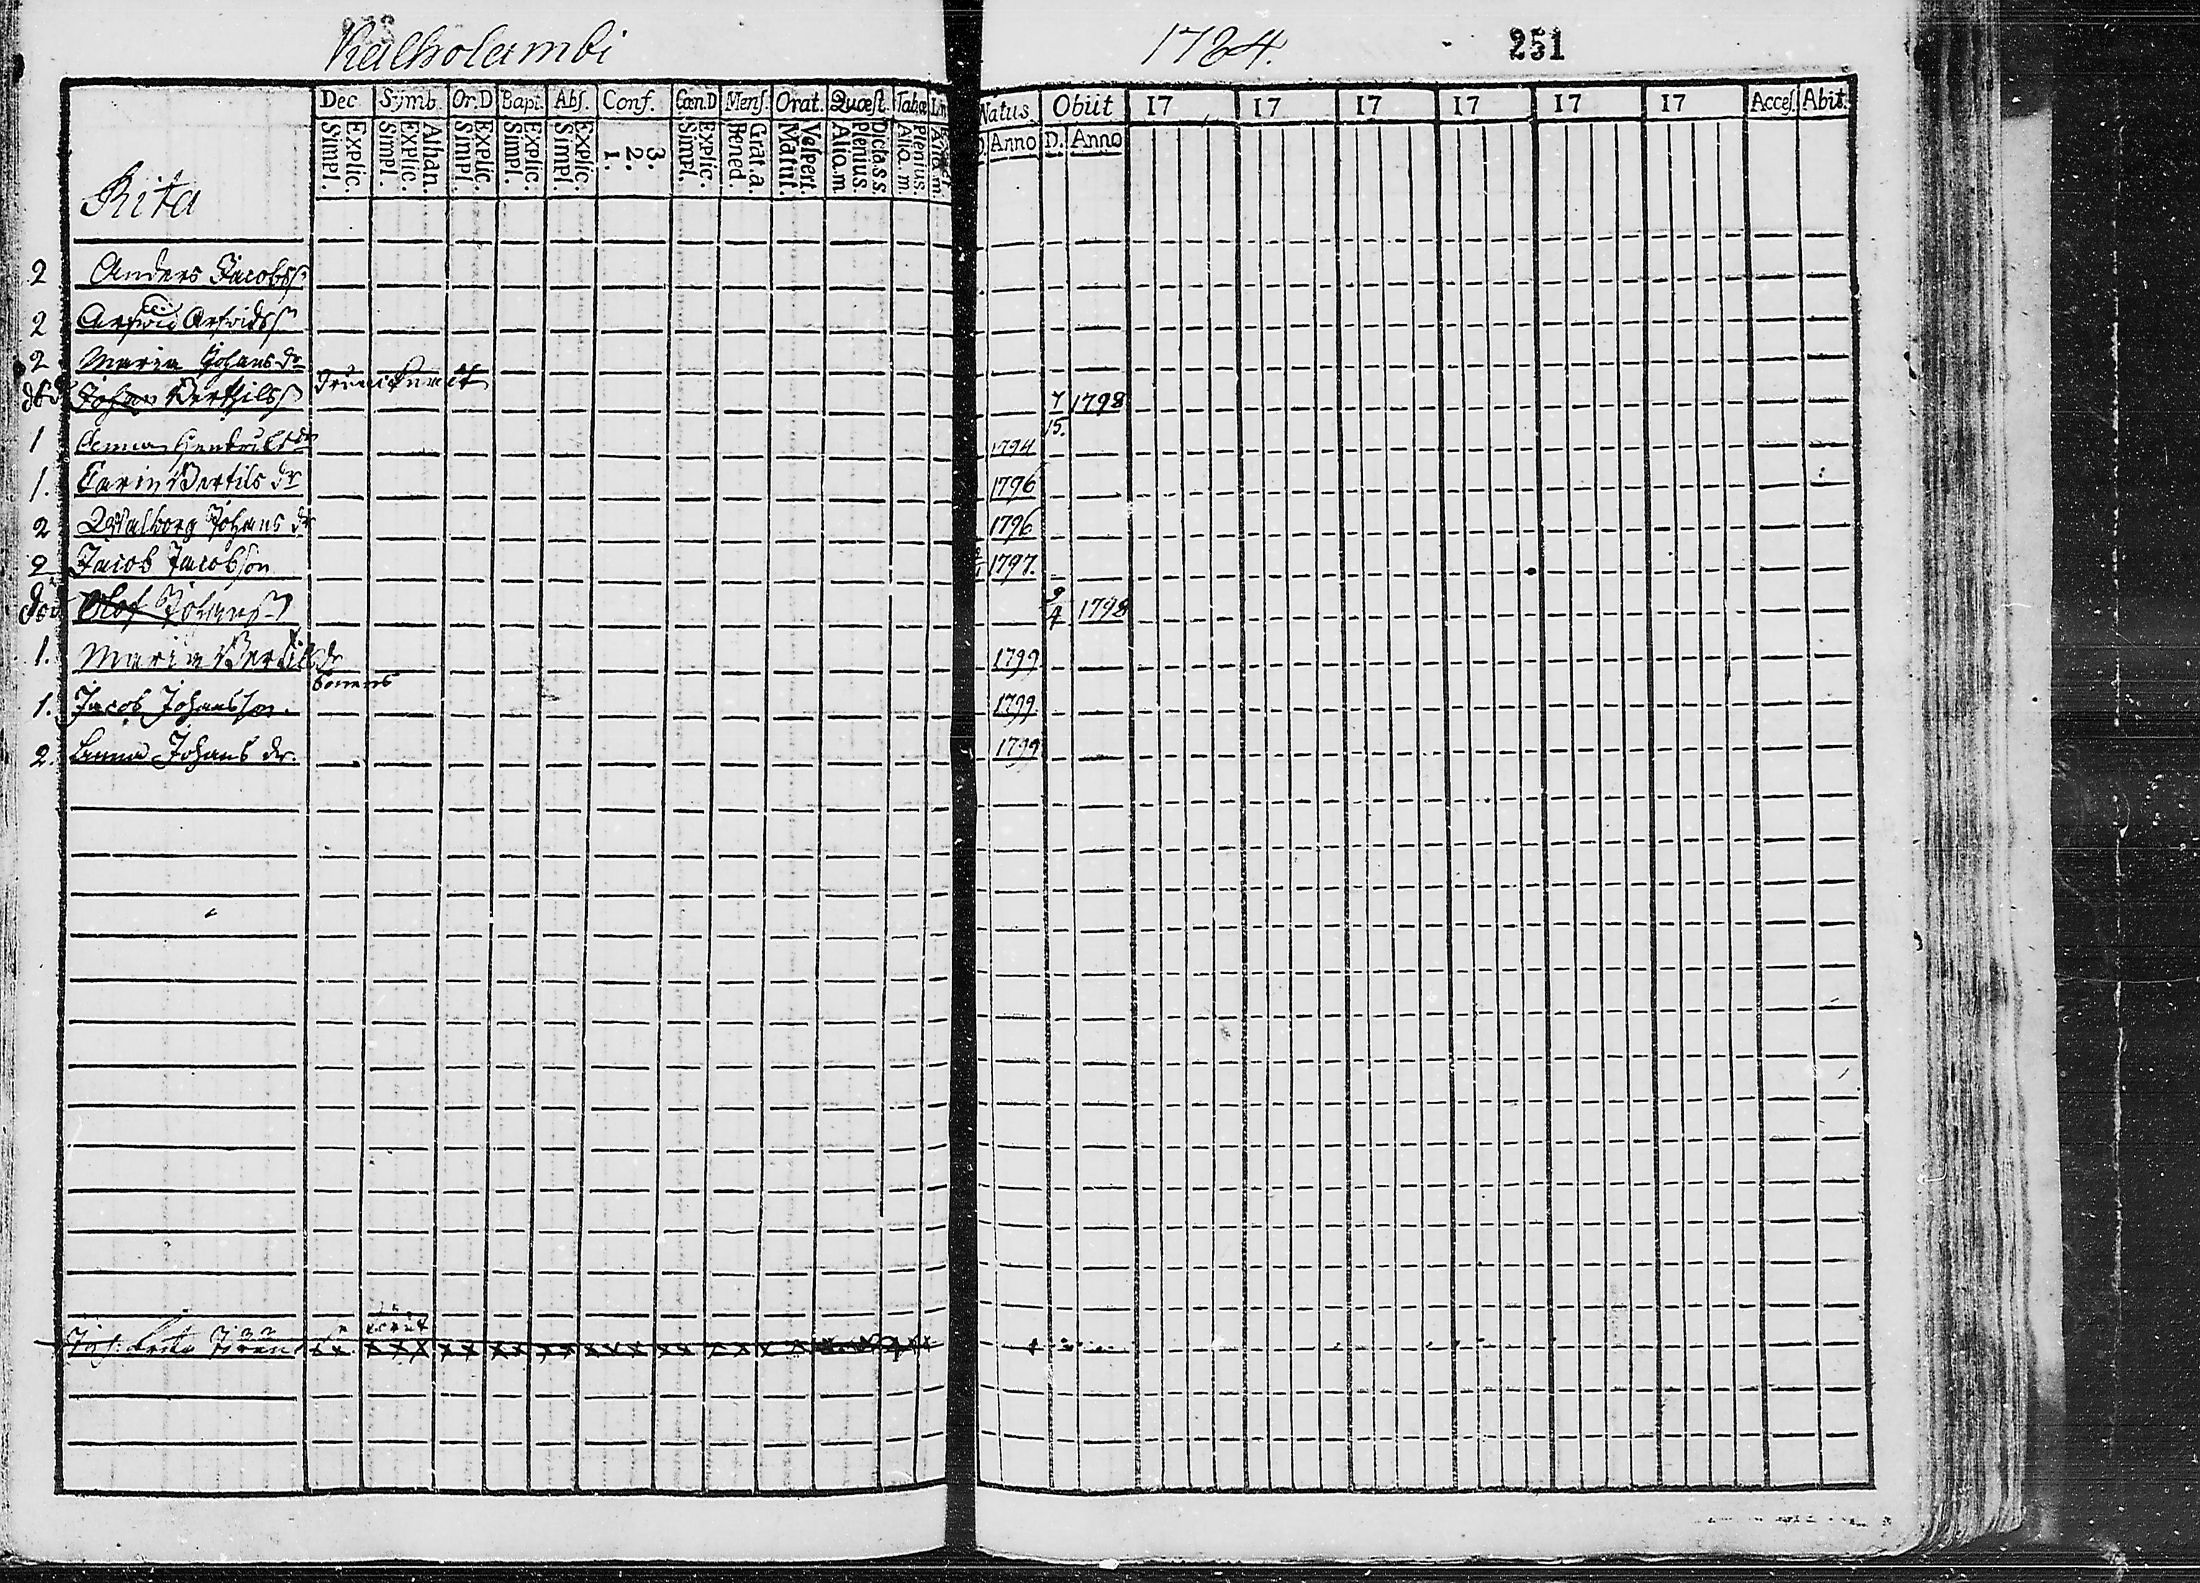 Kalholambi 1784. 251
Dec Symb. Or.D Bapt. Abſ. Conf. Cœn.D Menſ. Orat. Quæſt. Taba Natus Obiit 17 17 17 17 17 17 Acceſ. Abit.
Explic. Simpl. Athan. Explic. Simpl. Explic. Simpl. Explic. Simpl. Explic. Simpl. 3. 2. 1. Explic. Simpl. Grat. a. Bened. Veſpert. Matut. Dicta s.s. Plenius Alio.m Plenius. Alio.m. Anno D. Anno
Rita
2 Anders Jacobsſ
2 Arfvid Arfvidsſ
2 Maria Johans dr
död Johan Bertilsſ 7/15. 1798
1 Anna Hendrichs dr 1794
1. Carin Bertils dr 1796
2 Walborg Johans dr 1796
2 Jacob Jacobſon 1797.
död Olof Johansſ 9/4 1798
1. Maria Bertils dr 1799
1. Jacob Johansſon. 1799
2. Anna Johans dr. 1799